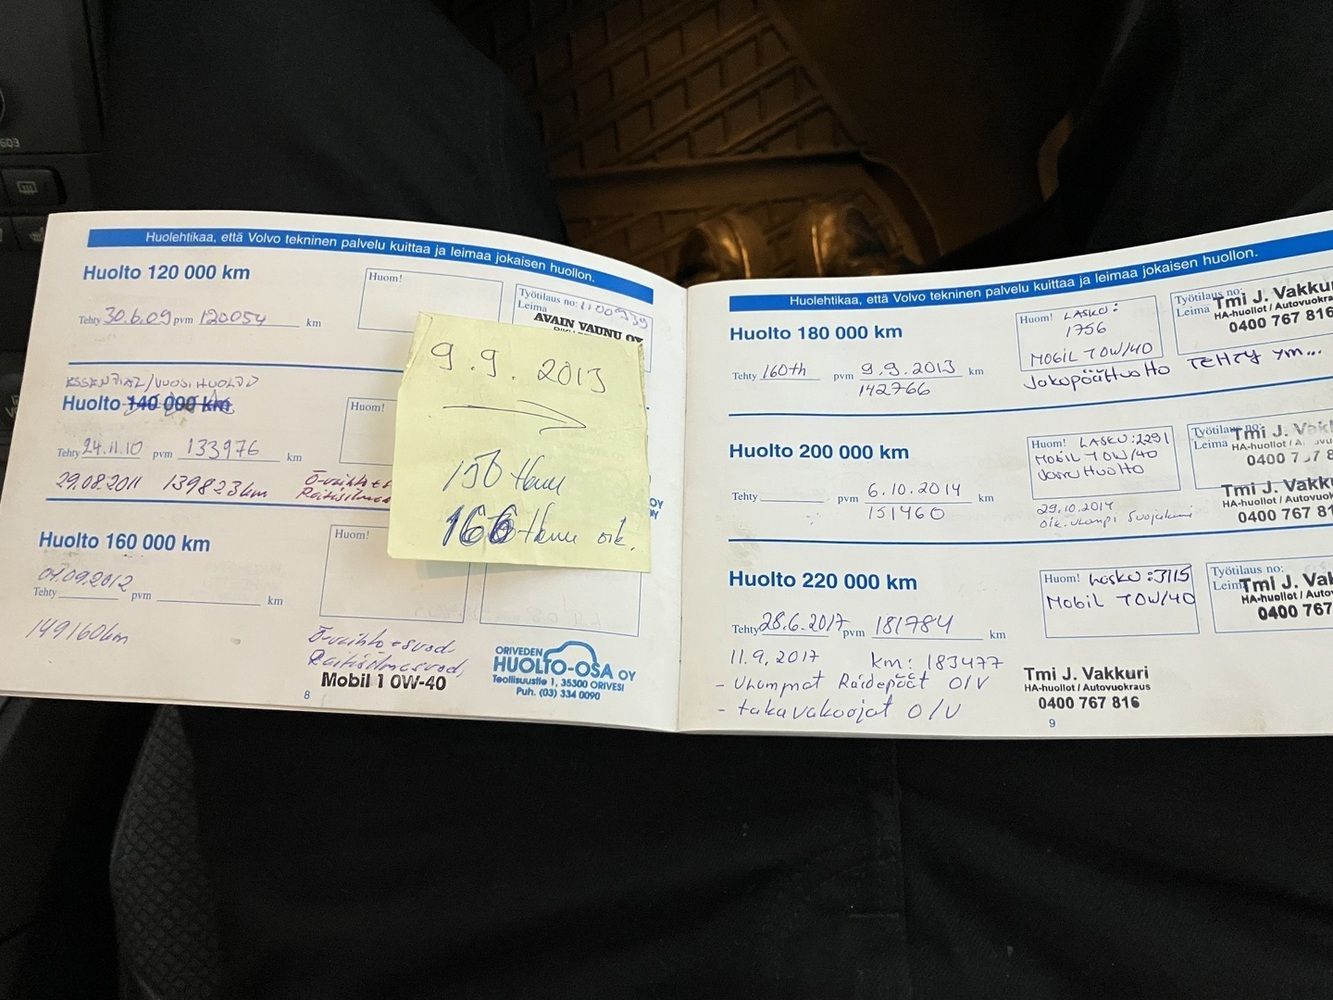 Huolehtikaa, että Volvo tekninen palvelu kuittaa ja leimaa jokaisen huollon.
Huolto 120 000 km
Huom!
Työtilaus no: 1100939
Leima
AVAIN VAUNU OY
Tehty 30.6.09 pvm 120054 km
ESSENTIAL/VUOSIHUOLTO
Huolto 140 000 km
Huom!
Tehty 24.11.10 pvm 133976 km
29.08.2011 139823km
Huolto 160 000 km
Huom!
04.09.2012
Tehty pvm km
149160km
Ö-vaihto + suod
Raitisilmasuod,
Mobil 1 0W-40
ORIVEDEN
HUOLTO-OSA OY
Teollisuustie 1, 35300 ORIVESI
Puh. (03) 334 0090
8
9.9. 2013
150 tkm
166 tkm oik.
Huolehtikaa, että Volvo tekninen palvelu kuittaa ja leimaa jokaisen huollon.
Huolto 180 000 km
Huom! LASKU:
1756
MOBIL 10W/40
Jakopäähuolto TEHTY ym...
Työtilaus no:
Leima
Tmi J. Vakkur
HA-huollot / Autovuokraus
0400 767 816
Tehty 160th pvm 9.9.2013 km
142766
Huolto 200 000 km
Huom! LASKU:2291
Mobil 10W/40
Jarruhuolto
Työtilaus no:
Leima
Tmi J. Vakk
0400
Tmi J. Vakku
HA-huollot / Autovuok
0400 767 81
Tehty pvm 6.10.2014 km
151460
29.10.2014
Huolto 220 000 km
Huom! Lasku:3115
Mobil 10W/40
Työtilaus no:
Leim
Tmi J. Vak
HA-huollot / Autov
0400 767
Tehty 28.6.2017 pvm 181784 km
11.9.2017 km: 183477
- Ulommat Raidepäät O/V
- takavakaajat O/V
Tmi J. Vakkuri
HA-huollot / Autovuokraus
0400 767 816
9